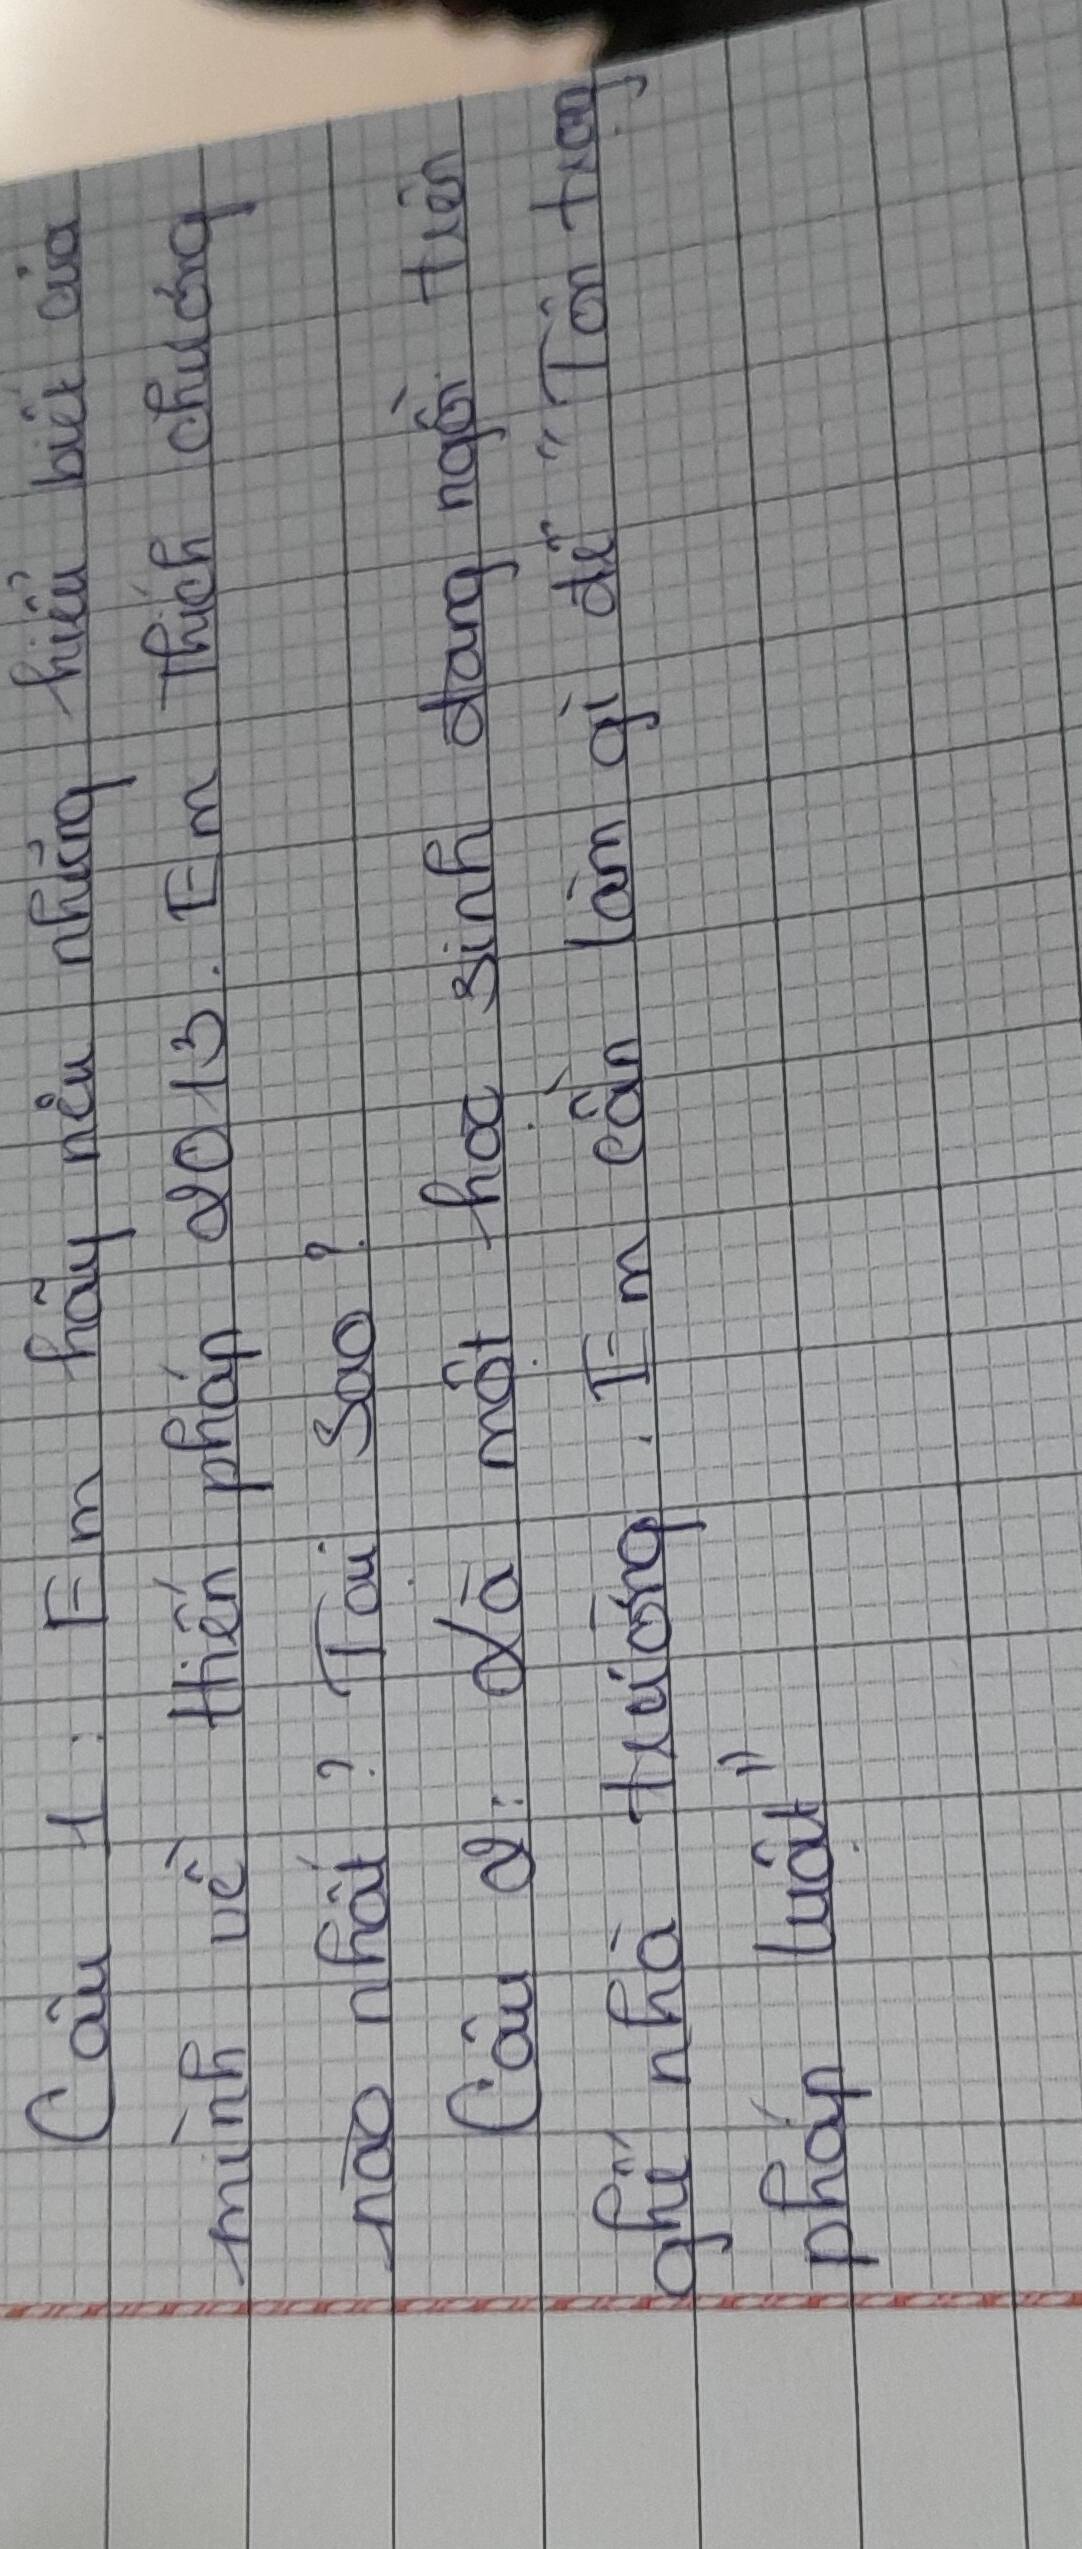 Câu 1: Em hãy nêu những hiểu biết của
mình về Hiến pháp 2013. Em thích chương
nào nhất? Tại sao?
Câu 2: Là một học sinh đang ngồi trên
ghế nhà trường. Em cần làm gì để "Tôn trọng
pháp luật"